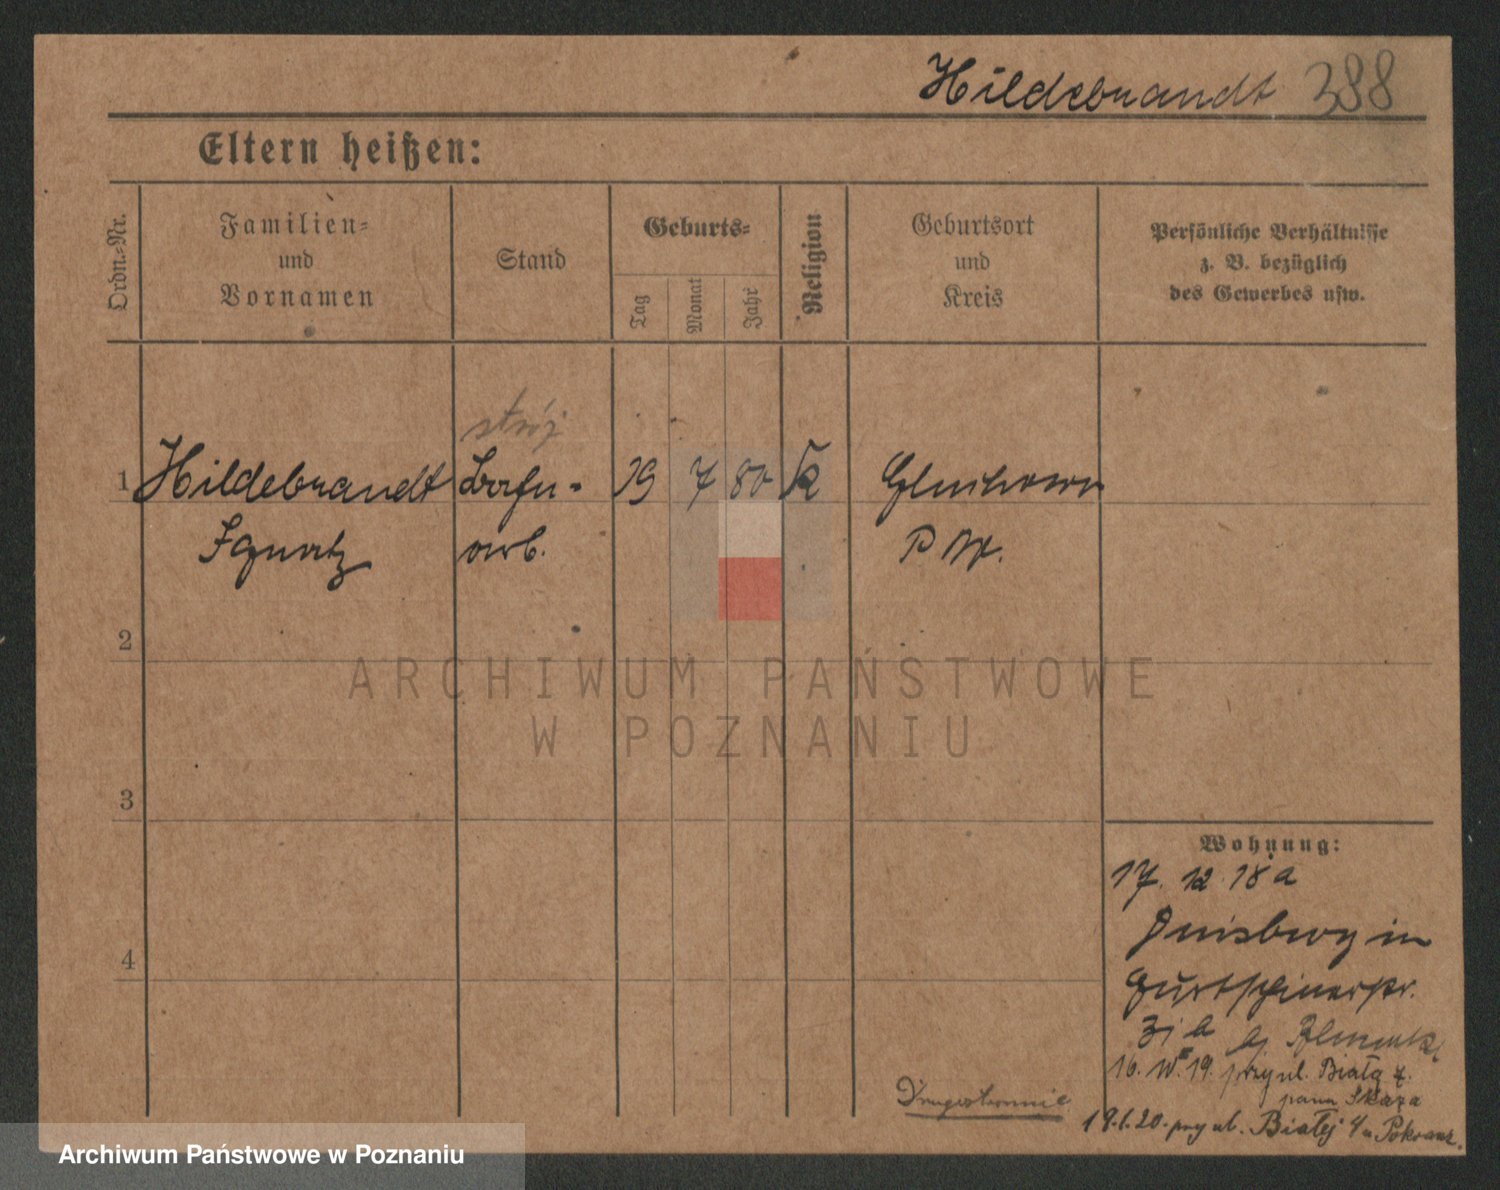 Hildebrandt 388
Eltern heißen:
Ordn.-Nr.
Familien-
und
Vornamen
Stand
Geburts-
Tag
Monat
Jahr
Religion
Geburtsort
und
Kreis
Persönliche Verhältnisse
z. B. bezüglich
des Gewerbes usw.
stróż
1 Hildebrandt 19 7 80 K
Ignatz arb.
2
3
4
ARCHIWUM PAŃSTWOWE
W POZNANIU
Wohnung:
17. 12 18 a
Duisburg in
Gurtschinerstr.
16. 19. przy ul. Białą 7.
pana Skaza
18.1.20. przy ul. Białej 4 u
Archiwum Państwowe w Poznaniu